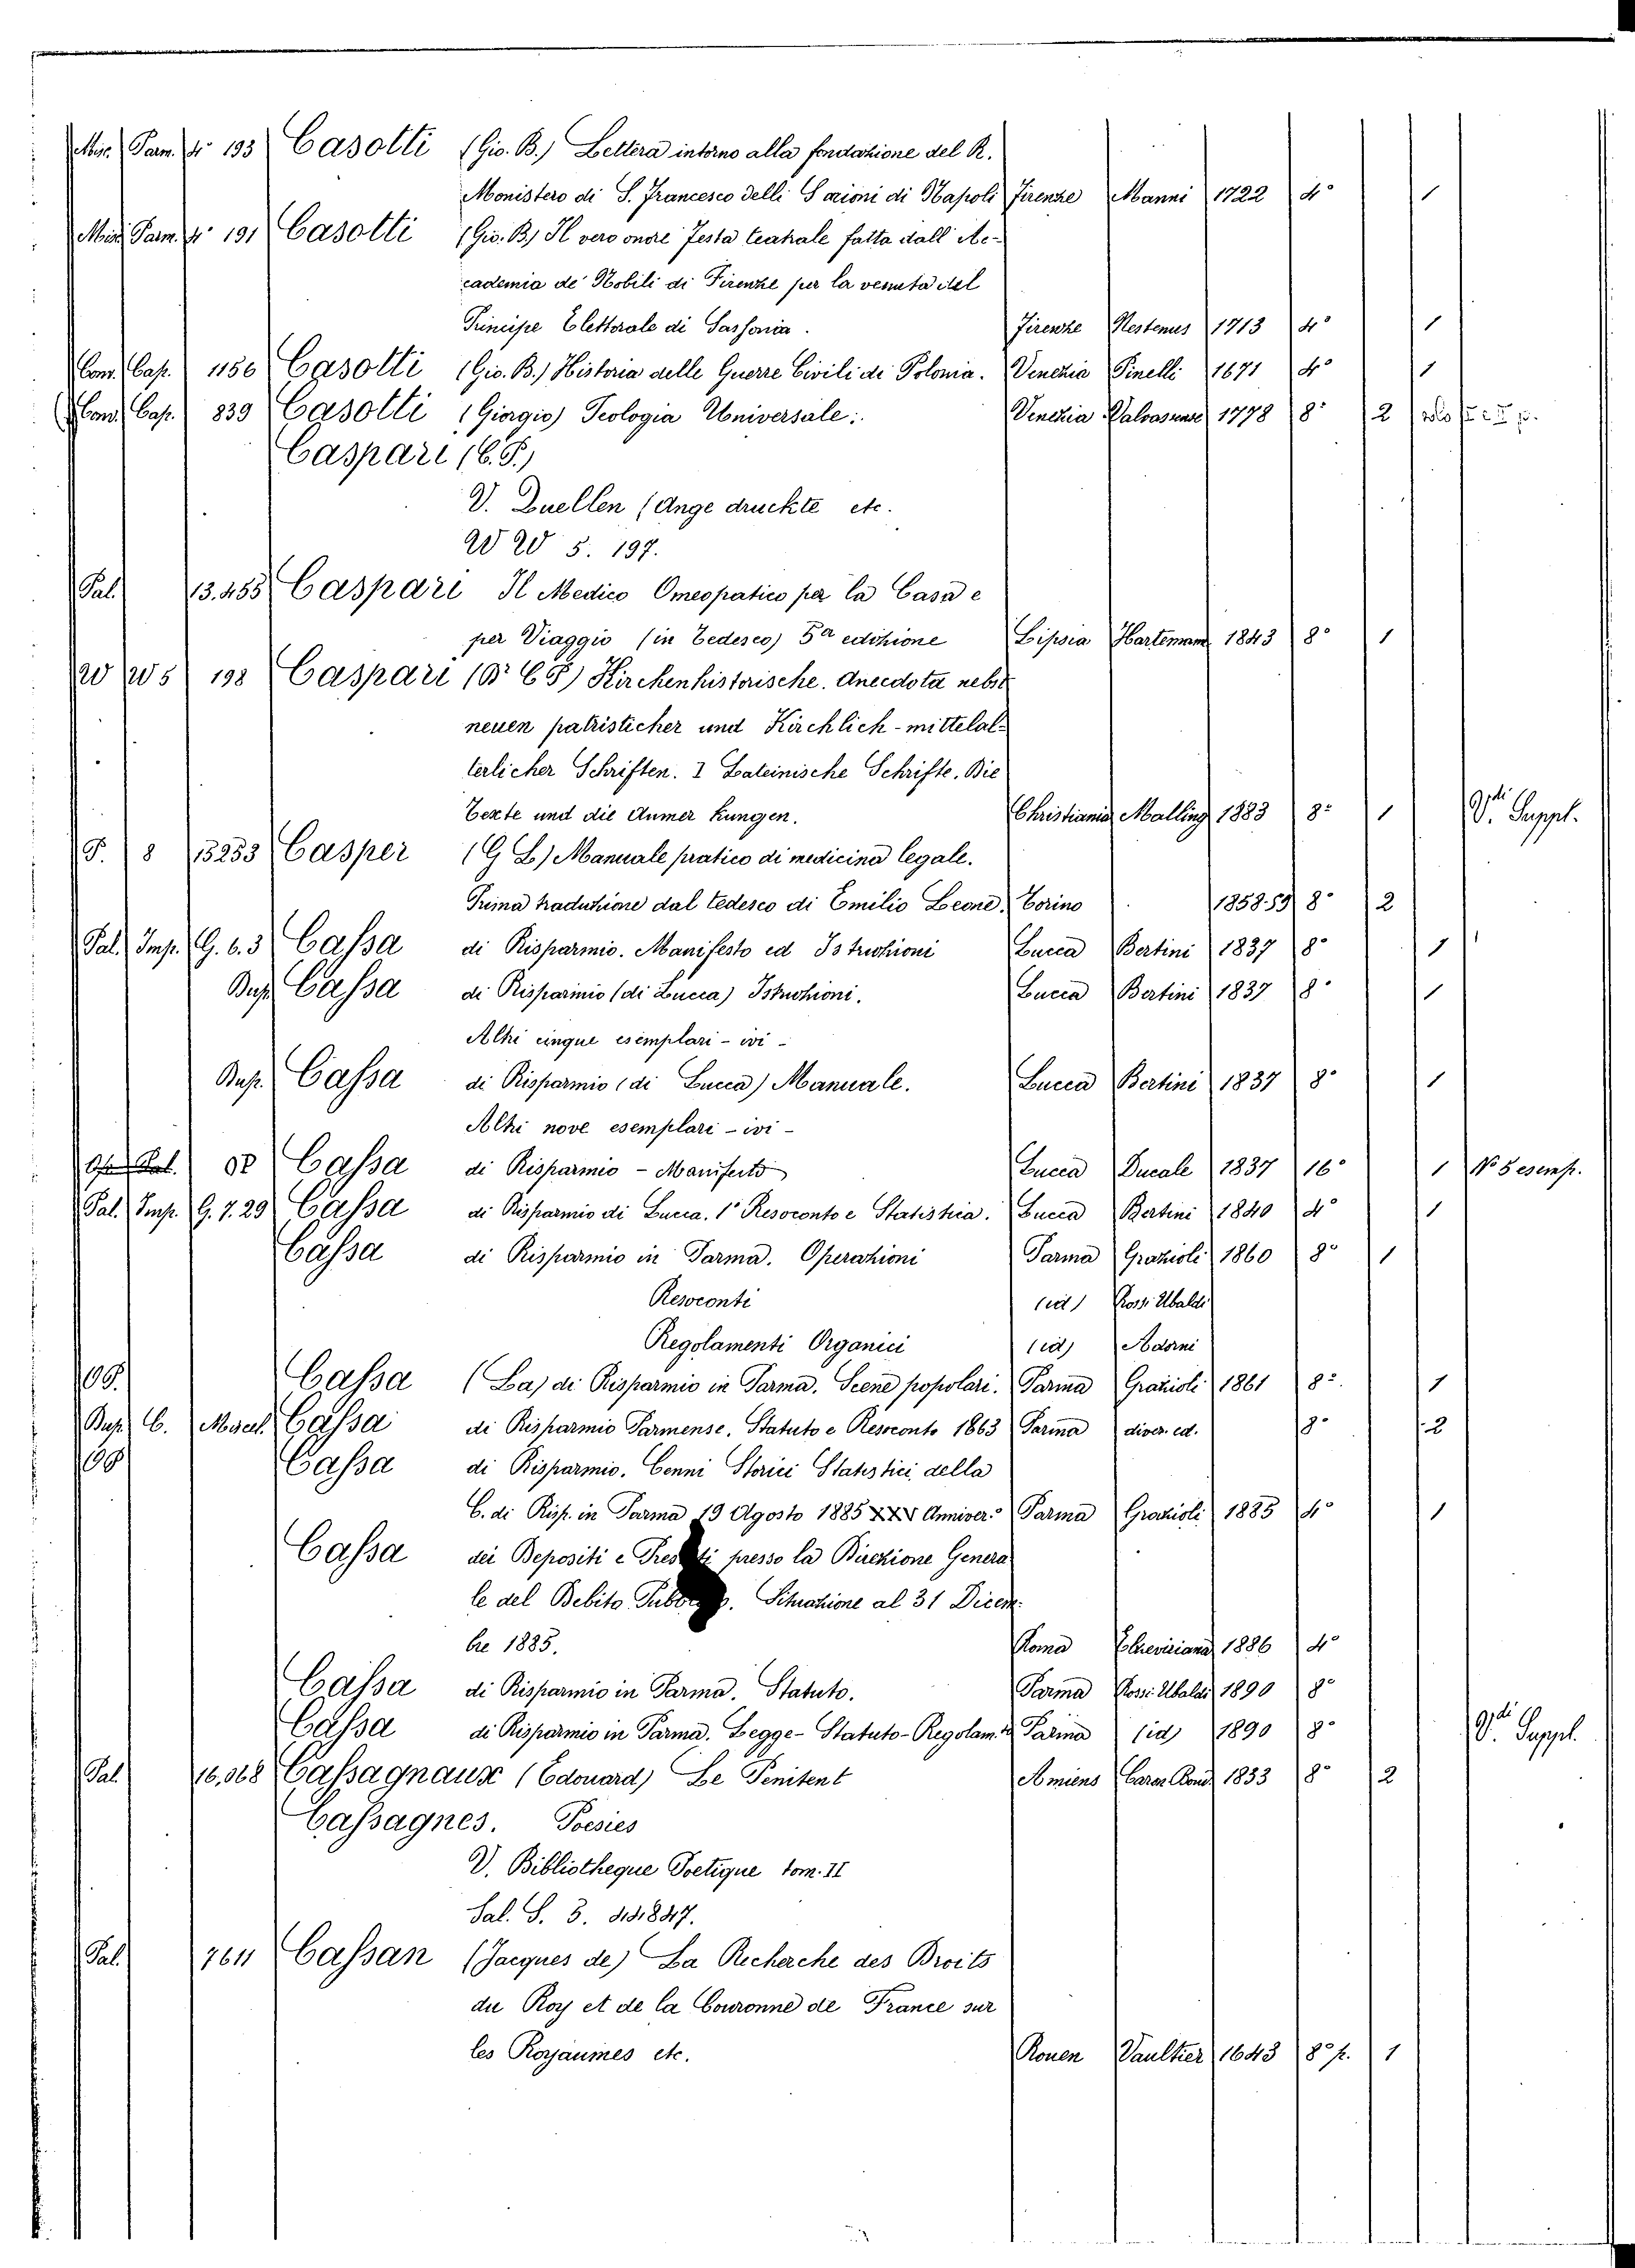 Misc. Parm. 4° 193 Casotti (Gio. B.) Lettera intorno alla fondazione del R.
Monistero di S. Francesco delli Scarioni di Napoli Firenze Manni 1722 4° 1
Misc. Parm. 4° 191 Casotti (Gio. B.) Il vero onore Festa teatrale fatta dall' Ac-
cademia de' Nobili di Firenze per la venuta del
Principe Elettorale di Sassonia. Firenze Nestenus 1713 4° 1
Con. Cap. 1156 Casotti (Gio. B.) Historia delle Guerre Civili di Polonia. Venezia Pinelli 1671 4° 1
Con. Cap. 839 Casotti (Giorgio) Teologia Universale: Venezia Valvasense 1778 8° 2
Caspari (C. P.)
V. Quellen (Ange druckte etc.
W W 5. 197.
Pal. 13.455 Caspari Il Medico Omeopatico per la Casa e
per Viaggio (in Tedesco) 5a edizione Lipsia Hartemann 1843 8° 1
W W 5 198 Caspari (Dr C P) Kirchenhistorische. Anecdota nebst
neuen patristicher und Kirchlich-mittelal-
terlicher Schriften. I Lateinische Schrifte. Die
Texte und die Anmer kungen. Christiania Malling 1883 8° 1 Vdi Suppl.
P. 8 15253 Casper (G L) Manuale pratico di medicina legale.
Prima traduzione dal tedesco di Emilio Leone. Torino 1858-59 8° 2
Pal. Imp. G. 6. 3 Cassa di Risparmio. Manifesto ed Istruzioni Lucca Bertini 1837 8° 1
Dup. Cassa di Risparmio (di Lucca) Istruzioni. Lucca Bertini 1837 8° 1
Altri cinque esemplari - ivi -
Dup. Cassa di Risparmio (di Lucca) Manuale. Lucca Bertini 1837 8° 1
Altri nove esemplari - ivi -
Cassa di Risparmio - Manifesto Lucca Ducale 1837 16° 1 No 5 esemp.
Pal. Imp. G. 7. 29 Cassa di Risparmio di Lucca. 1° Resoconto e Statistica. Lucca Bertini 1840 4° 1
Cassa di Risparmio in Parma. Operazioni Parma Grazioli 1860 8° 1
Resoconti (id) Rossi Ubaldi
Regolamenti Organici (id) Adorni
Cassa (La) di Risparmio in Parma. Scene popolari. Parma Grazioli 1861 8° 1
Dup. C. Miscel. Cassa di Risparmio Parmense. Statuto e Resoconto 1863 Parma diver. ed. 8° 2
Cassa di Risparmio. Cenni Storici Statistici della
C. di Risp. in Parma 19 Agosto 1885 XXV Anniver.o Parma Grazioli 1885 4° 1
Cassa dei Depositi e Prestiti presso la Direzione Genera
le del Debito Situazione al 31 Dicem-
bre 1885. Roma Elzeviriana 1886 4°
Cassa di Risparmio in Parma. Statuto. Parma Rossi Ubaldi 1890 8°
Cassa di Risparmio in Parma. Legge - Statuto - Regolam.to Parma (id) 1890 8° Vdi Suppl.
Pal. 16,068 Cassagnaux (Edouard) Le Penitent Amiens Caron 1833 8° 2
Cassagnes. Poesies
V. Bibliotheque Poetique tom. II
Sal. S. 3. 44847.
Pal. 7611 Cassan (Jacques de) La Recherche des Droits
du Roy et de la Couronne de France sur
les Royaumes etc. Rouen Vaultier 1643 8° p. 1